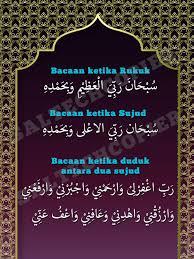 Bacaan ketika Rukuk
سُبْحَانَ رَبِّيَ الْعَظِيْمِ وَبِحَمْدِهِ
Bacaan ketika Sujud
سُبْحَانَ رَبِّيَ الْاَعْلَى وَبِحَمْدِهِ
Bacaan ketika duduk
antara dua sujud
رَبِّ اغْفِرْلِيْ وَارْحَمْنِيْ وَاجْبُرْنِيْ وَارْفَعْنِيْ
وَارْزُقْنِيْ وَاهْدِنِيْ وَعَافِنِيْ وَاعْفُ عَنِّيْ